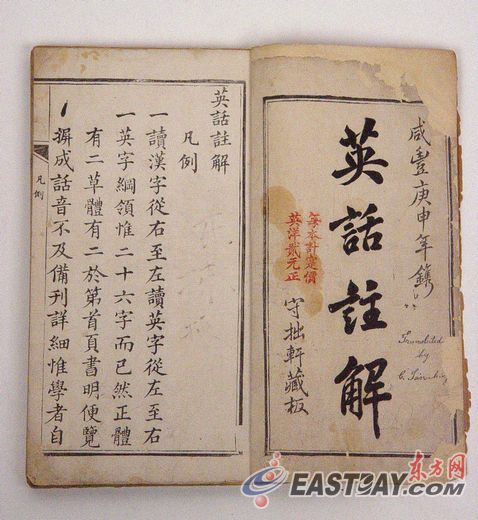 咸豐庚申年鐫
英話註解
每本計定價
英洋貳元正
守拙軒藏板
Translated
by
英話註解
凡例
一讀漢字從右至左讀英字從左至右
一英字綱領惟二十六字而已然正體
有二草體有二於第首頁書明便覽
摒成話音不及備刊詳細惟學者自
凡例
东方网
EASTDAY.COM